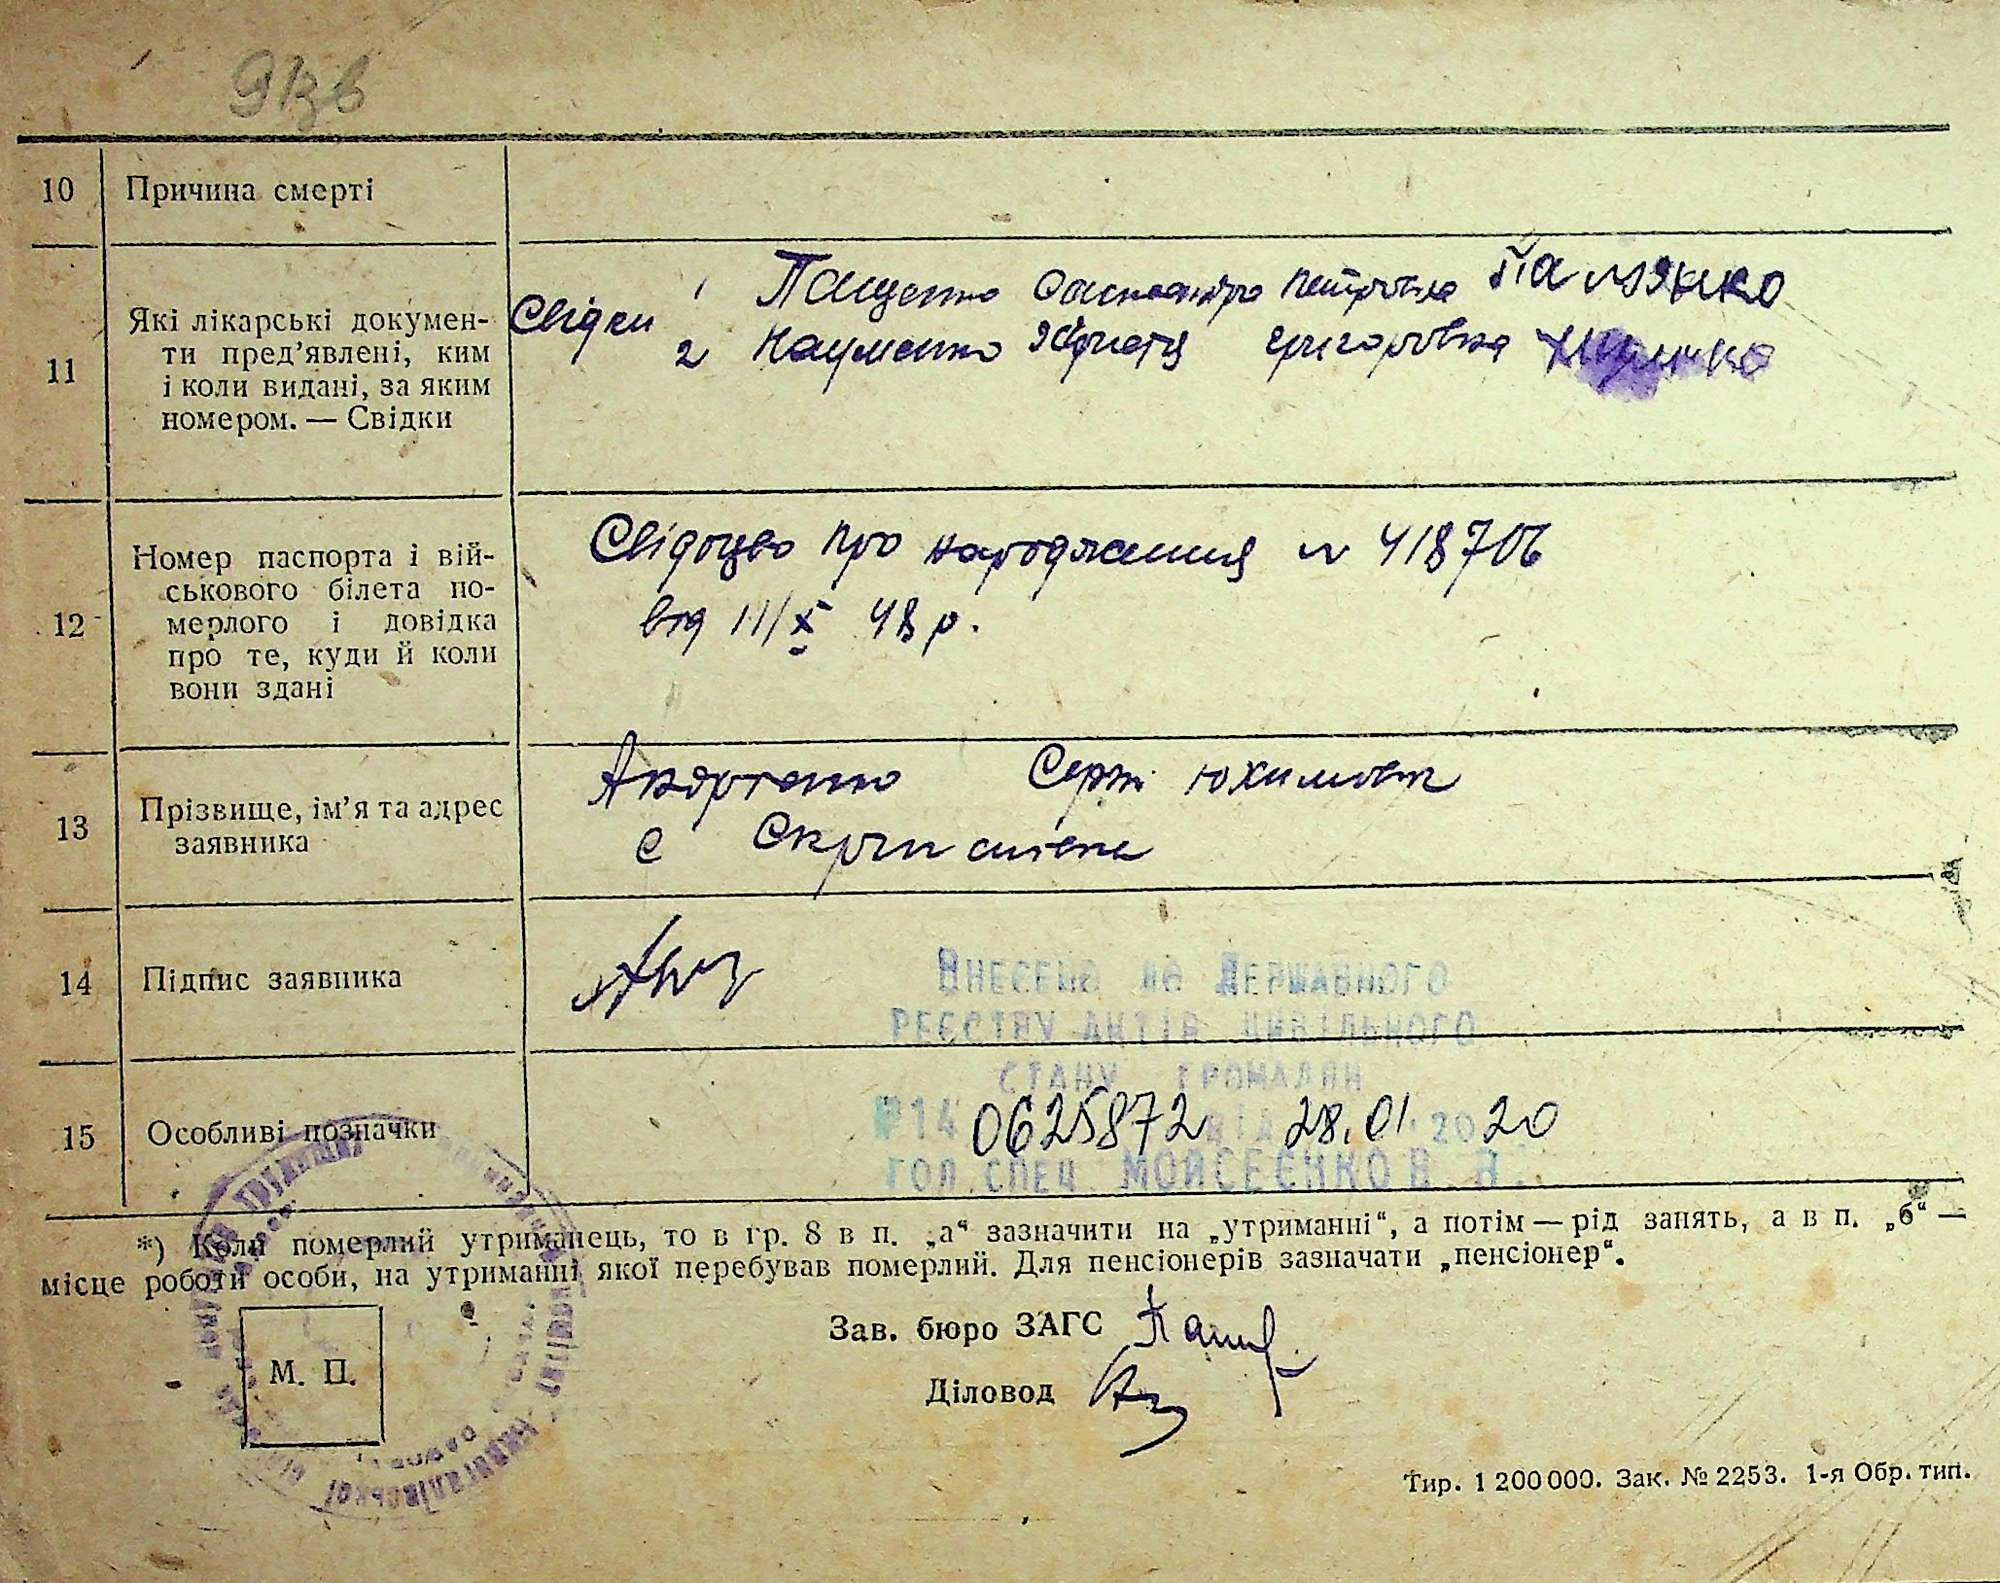 10 Причина смерті
11 Які лікарські докумен-
ти пред’явлені, ким
і коли видані, за яким
номером. — Свідки
Свідки
1 Пащенко Петрівна
2 Науменко Григорівна
12 Номер паспорта і вій-
ськового білета по-
мерлого і довідка
про те, куди й коли
вони здані
Свідоцво про народження № 418706
від 11/X 48 р.
13 Прізвище, ім’я та адрес
заявника
Сергій Юхимович
с
14 Підпис заявника
Внесено до Державного
реєстру актів цивільного
стану громадян
15 Особливі позначки
№14 0625872 від 28.01.2020
гол. спец. Моисеєнко В. А.
*) Коли померлий утриманець, то в гр. 8 в п. „а“ зазначити на „утриманні“, а потім — рід занять, а в п. „б“ —
місце роботи особи, на утриманні якої перебував померлий. Для пенсіонерів зазначати „пенсіонер“.
М. П.
Зав. бюро ЗАГС
Діловод
Тир. 1 200 000. Зак. № 2253. 1-я Обр. тип.